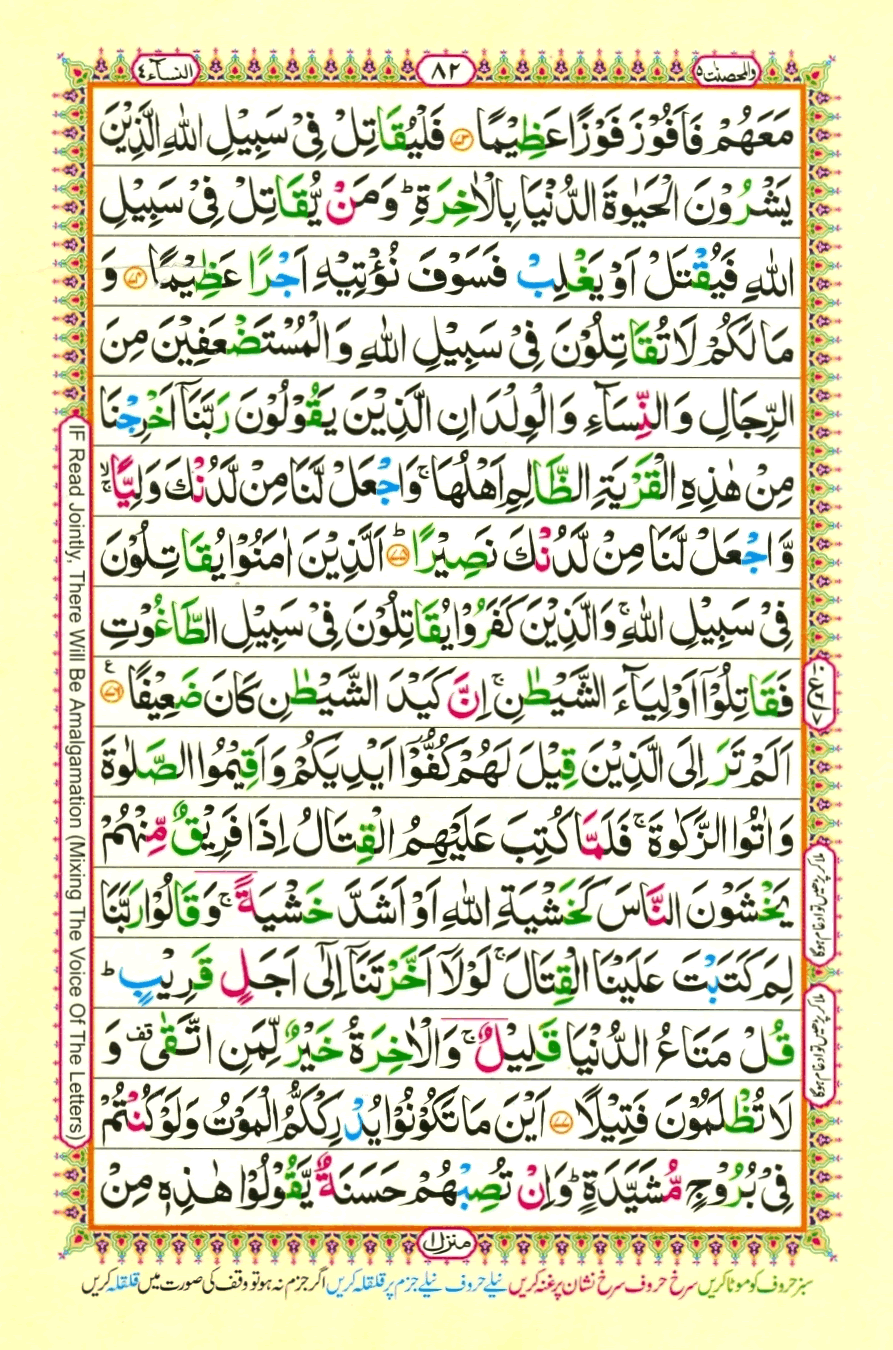 والمحصنت ٥
٨٢
النسآء ٤
مَعَهُمْ فَاَفُوْزَ فَوْزًا عَظِيْمًا ﴿٧٣﴾ فَلْيُقَاتِلْ فِىْ سَبِيْلِ اللّٰهِ الَّذِيْنَ
يَشْرُوْنَ الْحَيٰوةَ الدُّنْيَا بِالْاٰخِرَةِ ؕ وَمَنْ يُّقَاتِلْ فِىْ سَبِيْلِ
اللّٰهِ فَيُقْتَلْ اَوْ يَغْلِبْ فَسَوْفَ نُؤْتِيْهِ اَجْرًا عَظِيْمًا ﴿٧٤﴾ وَ
مَا لَكُمْ لَا تُقَاتِلُوْنَ فِىْ سَبِيْلِ اللّٰهِ وَالْمُسْتَضْعَفِيْنَ مِنَ
الرِّجَالِ وَالنِّسَآءِ وَالْوِلْدَانِ الَّذِيْنَ يَقُوْلُوْنَ رَبَّنَاۤ اَخْرِجْنَا
مِنْ هٰذِهِ الْقَرْيَةِ الظَّالِمِ اَهْلُهَا ۚ وَاجْعَلْ لَّنَا مِنْ لَّدُنْكَ وَلِيًّا ۙۚ
وَّاجْعَلْ لَّنَا مِنْ لَّدُنْكَ نَصِيْرًا ؕ﴿٧٥﴾ اَلَّذِيْنَ اٰمَنُوْا يُقَاتِلُوْنَ
فِىْ سَبِيْلِ اللّٰهِ ۚ وَالَّذِيْنَ كَفَرُوْا يُقَاتِلُوْنَ فِىْ سَبِيْلِ الطَّاغُوْتِ
فَقَاتِلُوْۤا اَوْلِيَآءَ الشَّيْطٰنِ ۚ اِنَّ كَيْدَ الشَّيْطٰنِ كَانَ ضَعِيْفًا ﴿٧٦﴾ ع
اَلَمْ تَرَ اِلَى الَّذِيْنَ قِيْلَ لَهُمْ كُفُّوْۤا اَيْدِيَكُمْ وَاَقِيْمُوا الصَّلٰوةَ
وَاٰتُوا الزَّكٰوةَ ۚ فَلَمَّا كُتِبَ عَلَيْهِمُ الْقِتَالُ اِذَا فَرِيْقٌ مِّنْهُمْ
يَخْشَوْنَ النَّاسَ كَخَشْيَةِ اللّٰهِ اَوْ اَشَدَّ خَشْيَةً ۚ وَقَالُوْا رَبَّنَا
لِمَ كَتَبْتَ عَلَيْنَا الْقِتَالَ ۚ لَوْلَاۤ اَخَّرْتَنَاۤ اِلٰٓى اَجَلٍ قَرِيْبٍ ؕ
قُلْ مَتَاعُ الدُّنْيَا قَلِيْلٌ ۚ وَالْاٰخِرَةُ خَيْرٌ لِّمَنِ اتَّقٰى قف وَ
لَا تُظْلَمُوْنَ فَتِيْلًا ﴿٧٧﴾ اَيْنَ مَا تَكُوْنُوْا يُدْرِكْكُّمُ الْمَوْتُ وَلَوْ كُنْتُمْ
فِىْ بُرُوْجٍ مُّشَيَّدَةٍ ؕ وَاِنْ تُصِبْهُمْ حَسَنَةٌ يَّقُوْلُوْا هٰذِهٖ مِنْ
منزل ١
ملا کر پڑھیں تو ادغام ہوگا
ملا کر پڑھیں تو ادغام ہوگا
IF Read Jointly, There Will Be Amalgamation (Mixing The Voice Of The Letters)
سبز حروف کو موٹا کریں سرخ حروف سرخ نشان پر غنہ کریں نیلے حروف نیلے جزم پر قلقلہ کریں اگر جزم نہ ہو تو وقف کی صورت میں قلقلہ کریں